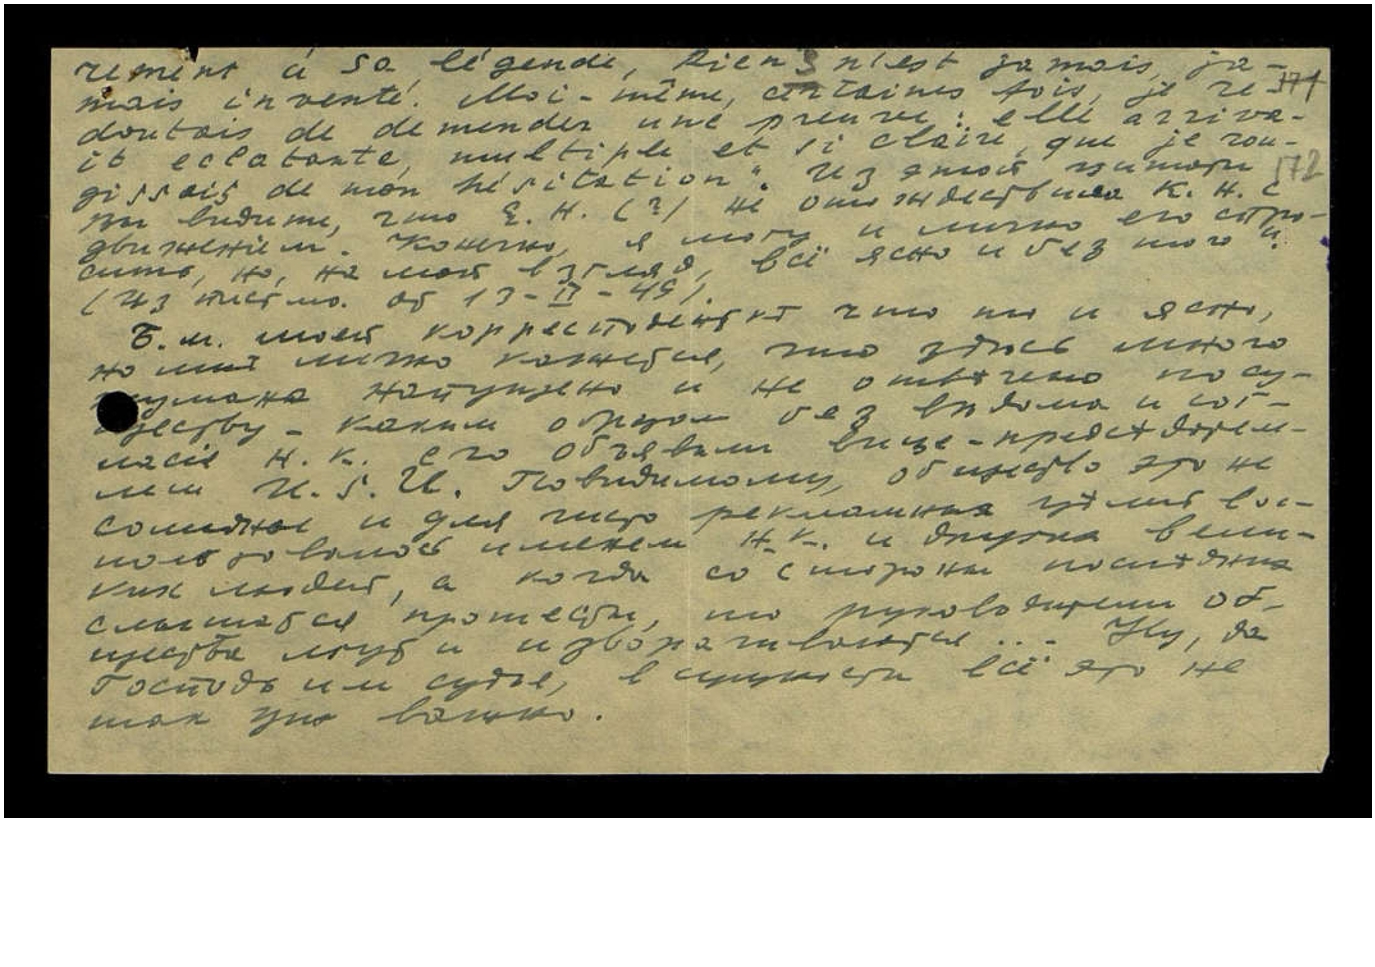 rement à sa légende, Rien 3 n'est jamais, ja-
mais inventé. Moi-même, certaines fois, je re- 571
doutais de demender une preuve: elle arriva-
it eclatante, multiple et si claire, que je rou-
gissais de mon hésitation". Из этой цитаты 572
вы видите, что Е. Н. (?) не отождествила К. Н. с
движеніем. Конечно, я могу и лично его спро-
сить, но, на мой взгляд, всё ясно и без того".
(Из письма от 13-II-49).
Б.м. моей корреспондентке что то и ясно,
но мне лично кажется, что здесь много
тумана напущено и не отвѣчено по су-
ществу - каким образом без ведома и сог-
ласіе Н.К. его объявили вице-председател-
лем U.S.U. Повидимому, общество это не
солидное и для чисто рекламных целей вос-
пользовалось именем Н.К. и других вели-
ких людей, а когда со стороны последних
слышатся протесты, то руководители об-
щества лгут и изворачиваются ... Ну, да
Господь им судья, в сущности всё это не
так уж важно.